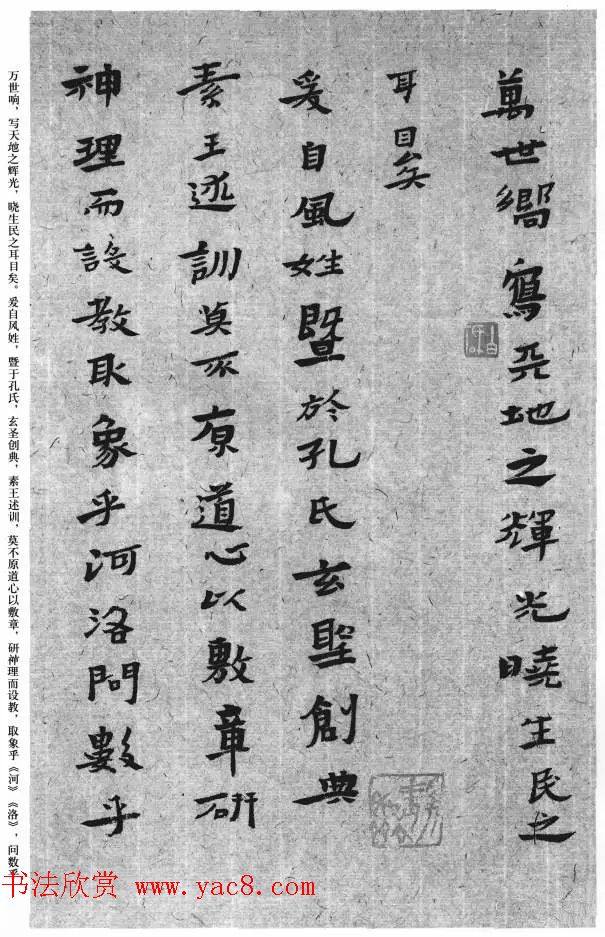 萬世嚮寫天地之輝光曉生民之
耳目矣
爰自風姓暨於孔氏玄聖創典
素王述訓莫不原道心以敷章研
神理而設教取象乎河洛問數乎
万世响，写天地之辉光，晓生民之耳目矣。爰自风姓，暨于孔氏，玄圣创典，素王述训，莫不原道心以敷章，研神理而设教，取象乎《河》《洛》，问数乎
书法欣赏 www.yac8.com